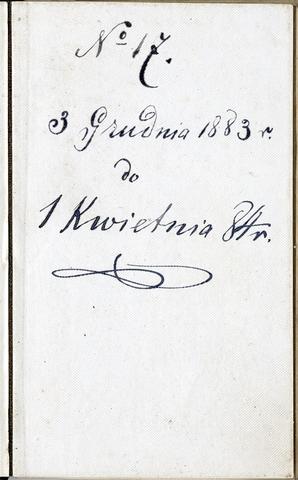 No 17.
3 Grudnia 1883 r.
do
1 Kwietnia 84 r.